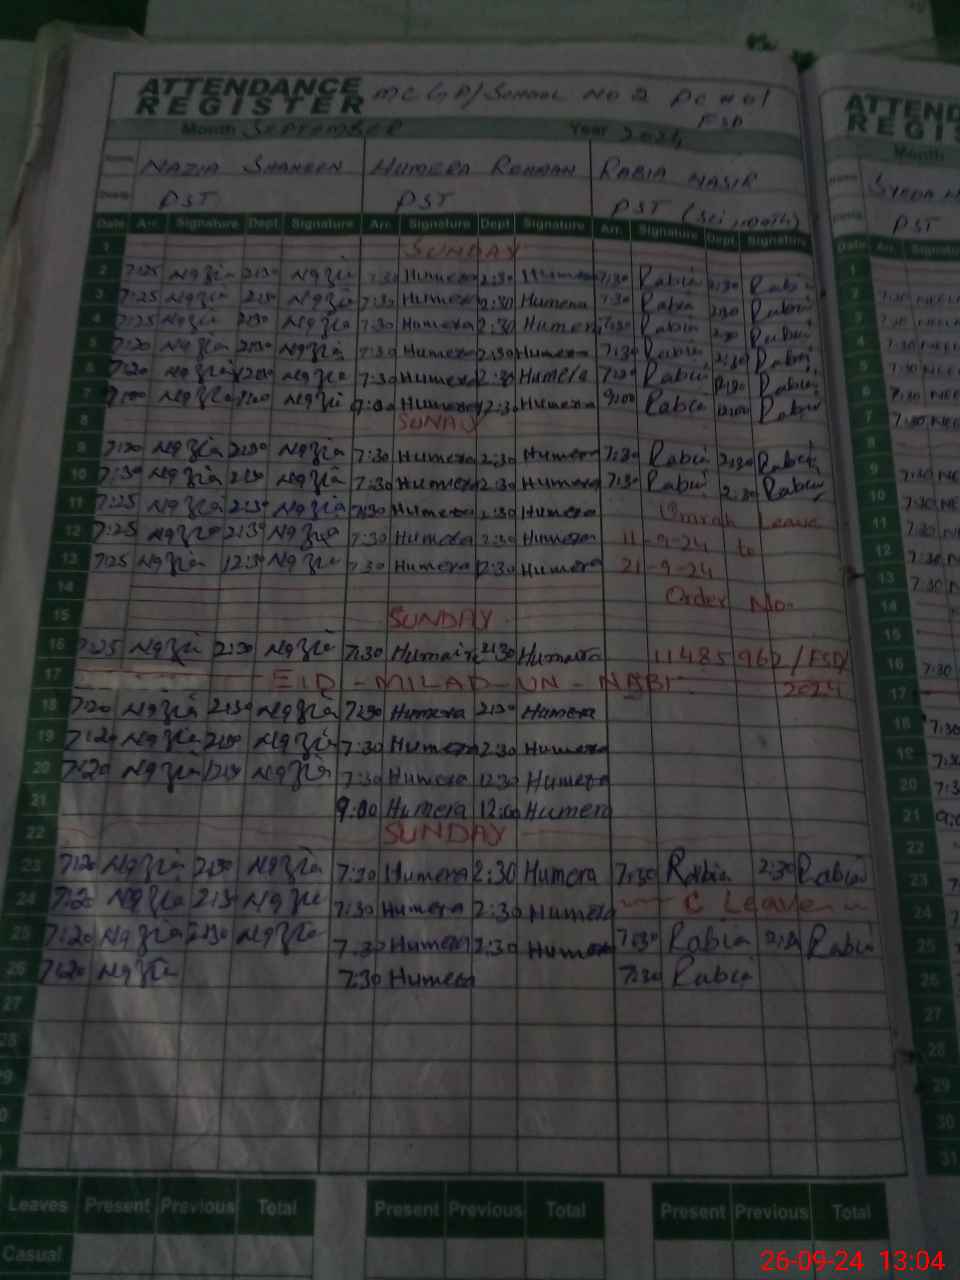 ATTENDANCE REGISTER MC GP/School No 2 FSD
Month September Year 2024
Name NAZIA SHAHEEN HUMERA REHMAN RABIA NASIR
PST PST PST (Sci math)
Date Arr. Signature Dept Signature Arr. Signature Dept Signature Arr. Signature Dept Signature
1 SUNDAY
2 7:25 Nazia 2:30 Nazia 7:30 Humera 2:30 Humera 7:30 Rabia 2:30 Rabia
3 7:25 Nazia 2:30 Nazia 7:30 Humera 2:30 Humera 7:30 Rabia 2:30 Rabia
4 7:25 Nazia 2:30 Nazia 7:30 Humera 2:30 Humera 7:30 Rabia 2:30 Rabia
5 7:20 Nazia 2:30 Nazia 7:30 Humera 2:30 Humera 7:30 Rabia 2:30 Rabia
6 7:20 Nazia 12:30 Nazia 7:30 Humera 12:30 Humera 7:30 Rabia 12:30 Rabia
7 Nazia Nazia 9:00 Humera Humera 9:00 Rabia 12:00 Rabia
8 SUNAY
9 7:20 Nazia 2:30 Nazia 7:30 Humera 2:30 Humera 7:30 Rabia 2:30 Rabia
10 7:30 Nazia 2:30 Nazia 7:30 Humera 2:30 Humera 7:30 Rabia 2:30 Rabia
11 7:25 Nazia 2:30 Nazia 7:30 Humera 2:30 Humera Umrah Leave
12 7:25 Nazia 2:30 Nazia 7:30 Humera 2:30 Humera 11-9-24 to
13 7:25 Nazia 12:30 Nazia 7:30 Humera 12:30 Humera 21-9-24
14 Order No.
15 SUNDAY
16 7:25 Nazia 2:30 Nazia 7:30 Humaira 2:30 Humaira 11485962/FSD/
17 EID-MILAD-UN-NABI 2024
18 7:20 Nazia 2:30 Nazia 7:30 Humera 2:30 Humera
19 7:20 Nazia 2:30 Nazia 7:30 Humera 2:30 Humera
20 7:20 Nazia 12:30 Nazia 7:30 Humera 12:30 Humera
21 9:00 Humera 12:00 Humera
22 SUNDAY
23 7:20 Nazia 2:30 Nazia 7:30 Humera 2:30 Humera 7:30 Rabia 2:30 Rabia
24 7:20 Nazia 2:30 Nazia 7:30 Humera 2:30 Humera C Leave
25 7:20 Nazia 2:30 Nazia 7:30 Humera 2:30 Humera 7:30 Rabia 2:30 Rabia
26 7:20 Nazia 7:30 Humera 7:30 Rabia
27
28
29
30
Leaves Present Previous Total Present Previous Total Present Previous Total
Casual
ATTEND
REGIS
Month
Name SYEDA
PST
Date Arr. Signature
1
2 7:30
3 7:30
4 7:30
5 7:30
6 7:30
7 7:30
8
9 7:30
10 7:30
11 7:30
12 7:30
13 7:30
14
15
16 7:30
17
18 7:30
19 7:30
20 7:30
21 9:0
22
23
24
25
26
27
28
29
30
31
26-09-24 13:04